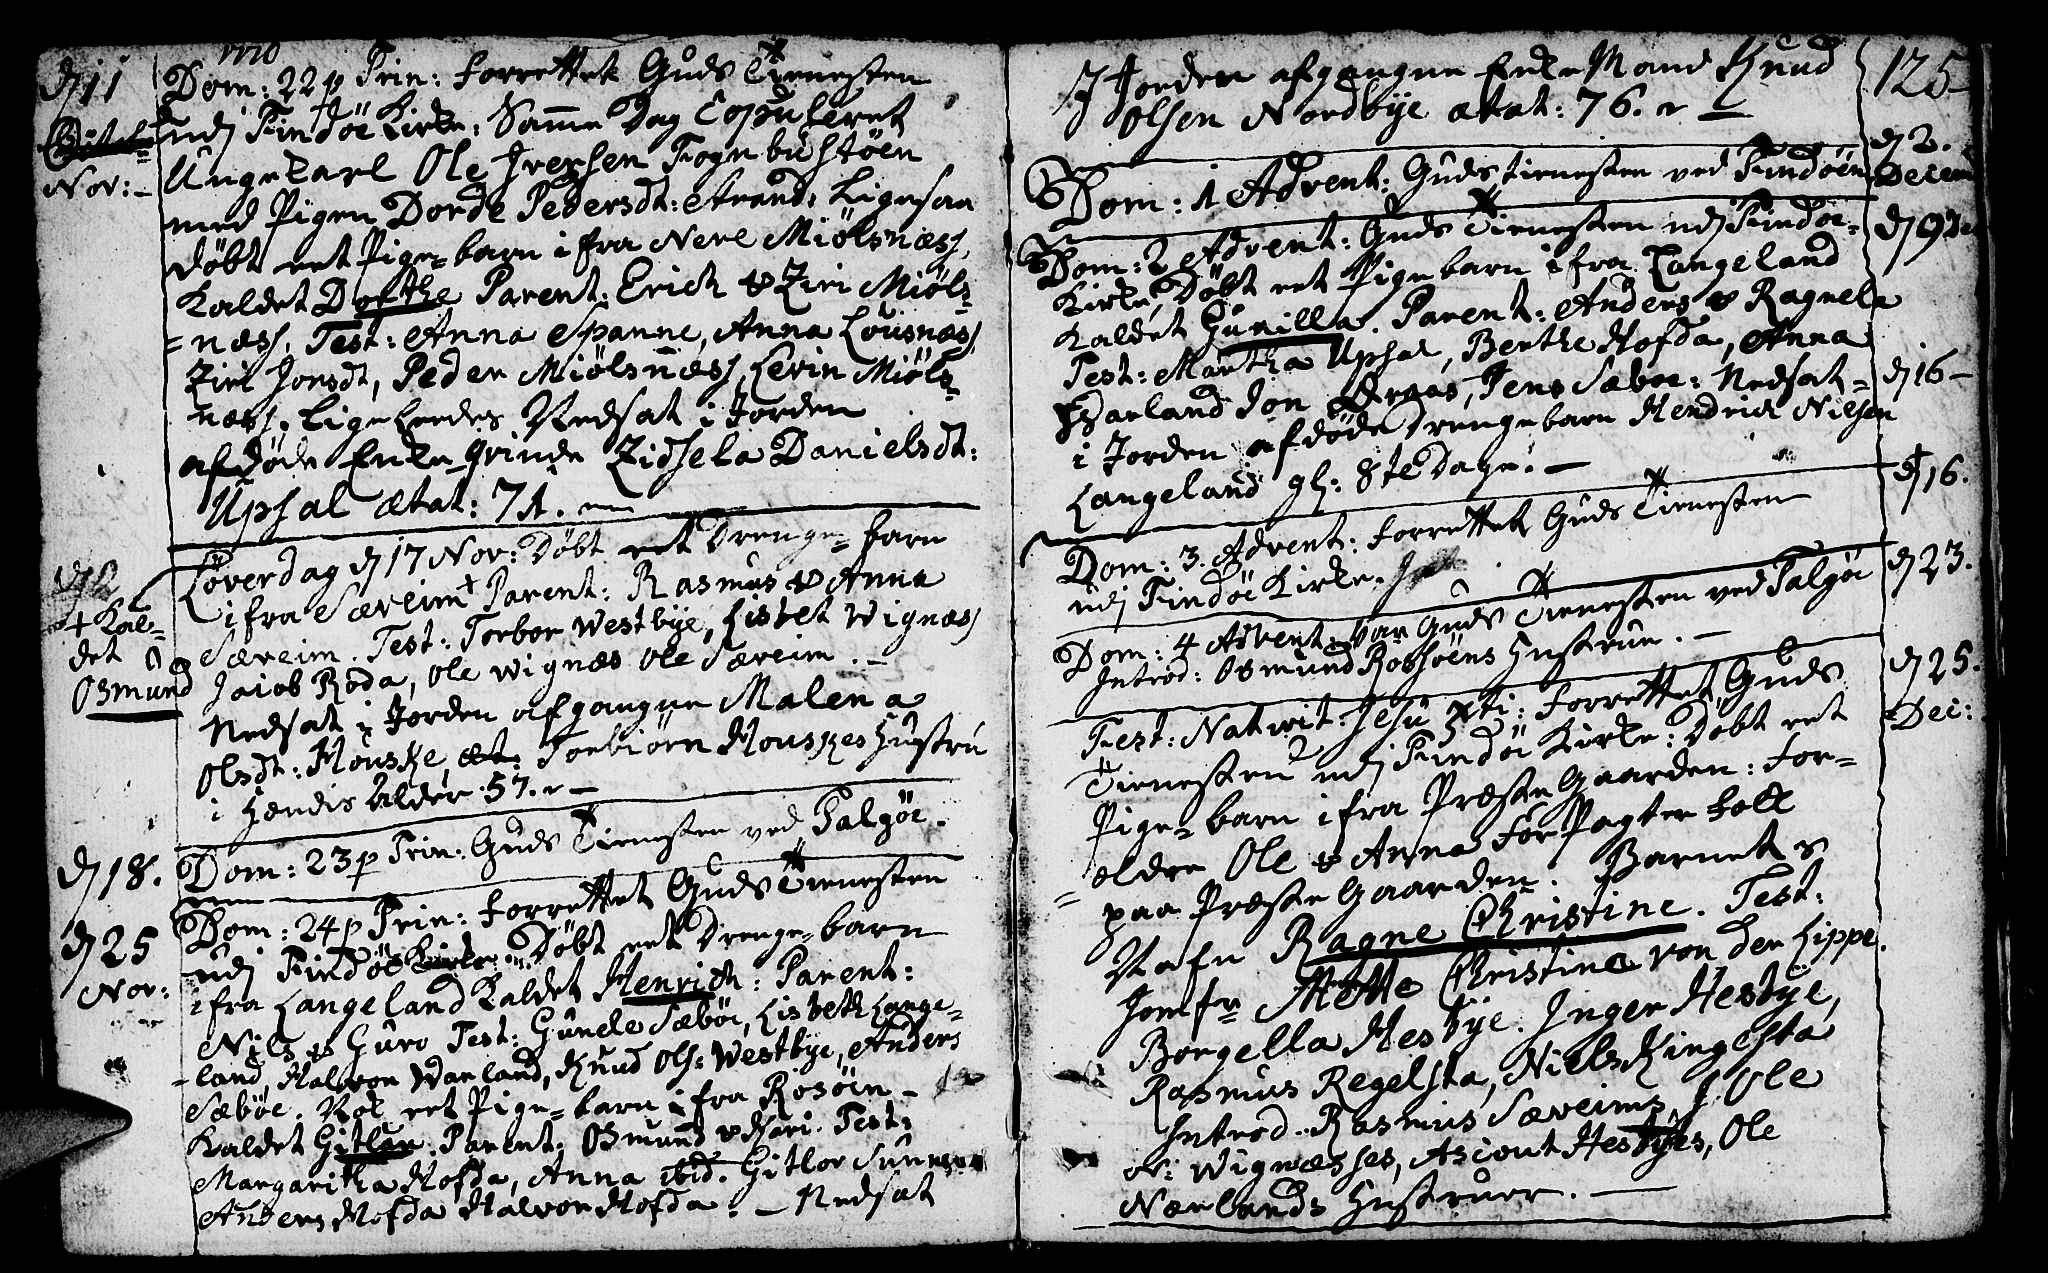 1770
d 11
Octob:
Nov:
Dom: 22 p Trin: forrettet Guds Tienesten
udj Findöe Kirke: Samme Dag Copuleret
Ungekarl Ole Iversen Fogn bustöen
med Pigen Dorde Pedersdt: Strand: Ligesaa
døbt eet Pige-barn ifra Nere Miölsnæss,
Kaldet Dorthe Parent: Erich & Ziri Miöls-
=næss. Test: Anna Spanne, Anna Lousnæss
Ziri Jonsdt, Peder Miölsnæss, Levin Miöls-
næss. Ligeledes Nedsat i Jorden
afdøde Enke-Qvinde Zidsela Danielsdt:
Uphal ætat: 71.
+ Kal-
det
Osmund
Löverdag d 17 Nov: Döbt eet Drenge-barn
ifra Sæveim + Parent: Rasmus & Anna
Sæveim. Test: Torbor Westbye, Lisbet Wignæss
Jacob Roda, Ole Wignæs Ole Sæveim.
Nedsat i Jorden afgangne Malena
Olsdt: Houske æt: Torbiörn Houskes Hustru
i Hendis Alder 57.
d 18.
Dom: 23 p Trin: Guds Tienesten ved Talgöe.
d 25
Nov:
Dom: 24 p Trin: forrettet Guds Tienesten
udj Findöe Kirke: Döbt eet Drenge-barn
ifra Langeland Kaldet Henrich: Parent:
Nils & Guro Test: Gunele Sæböe, Lisbeth Lange-
-land, Halvor Warland, Knud Ols: Westbye, Anders
Sæböe. Nok eet Pige-barn ifra Rosöen
Kaldet Gitlor. Parent: Osmund & Kari. Test:
Margaritha Hofda, Anna ibid. Gitlor
Anders Hofda Halvor Hofda. - Nedsat
125
I Jorden afgangne EnkeMand Knud
Olsen Nordbye ætat: 76.
d 2.
Decem
Dom: 1 Advent: Guds tienesten ved Findöen
d 9
Dom: 2 Advent: Guds Tienesten udj Findöe-
Kirke, Döbt eet Pigebarn ifra Langeland
Kaldet Gunilla. Parent: Anders & Ragnela
Test: Martha Uphal, Berthe Hofda, Anna
d 16
Warland Jon, Jens Sæboe: Nedsat
i Jorden afdøde Drengebarn Hendrich Nielsen
Langeland gl: 8te Dage.
d 16.
Dom: 3. Advent: forrettet Guds Tienesten
udj Findöe Kirke.
d 23.
Dom: 4 Advent: Var Guds Tienesten ved Talgöe
Introd: Osmund Rossöens Hustrue.
d 25.
Dec:
Fest: Nativit: Jesu Xti: forrettet Guds
Tienesten udj Findöe Kirke: Döbt eet
Pige-barn ifra Præste Gaarden: For-
=ældre Ole & Anna ForPagter folk
paa Præste Gaarden. Barnets
Nafn Ragne Christine. Test:
Jomfr Mette Christine von der Lippe.
Borgella Hesbye. Inger Hesbye,
Rasmus Regelsta, Niels Ringesta
Introd. Rasmus Sæveims, Ole
N: Wignæsses, Asiout Hesbyes, Ole
Nærlands Hustruer.